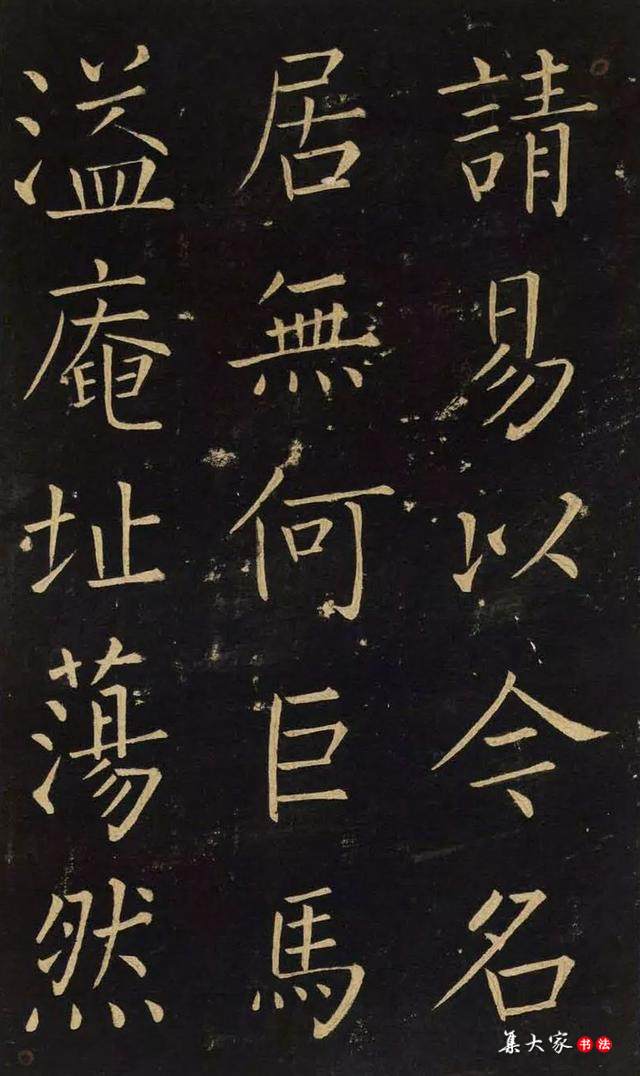 請易以今名
居無何巨馬
溢庵址蕩然
集大家书法